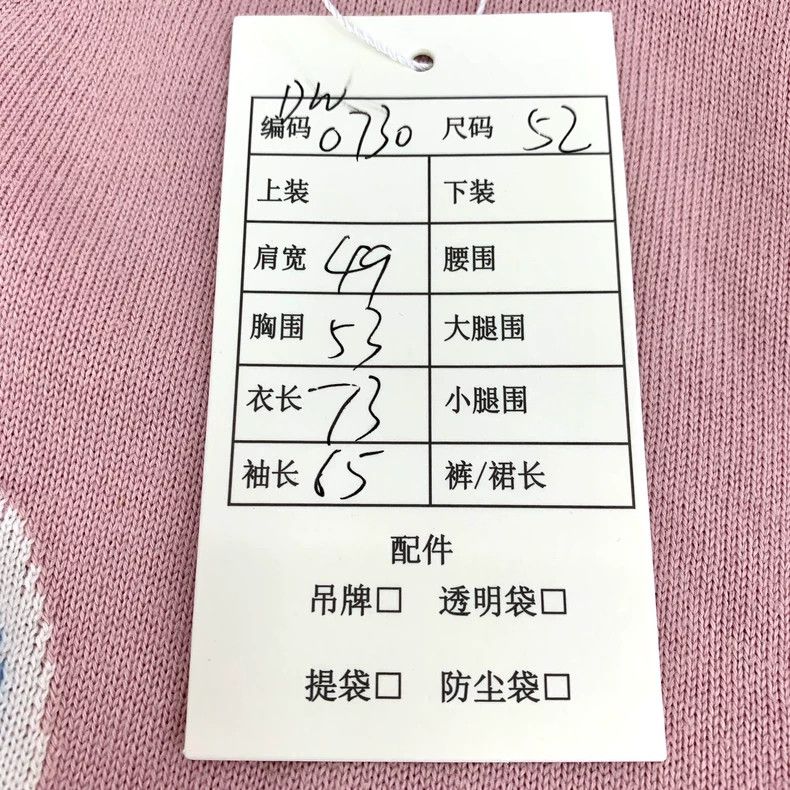 DW
编码 0730 尺码 52
上装 下装
肩宽 49 腰围
胸围 53 大腿围
衣长 73 小腿围
袖长 65 裤/裙长
配件
吊牌□ 透明袋□
提袋□ 防尘袋□